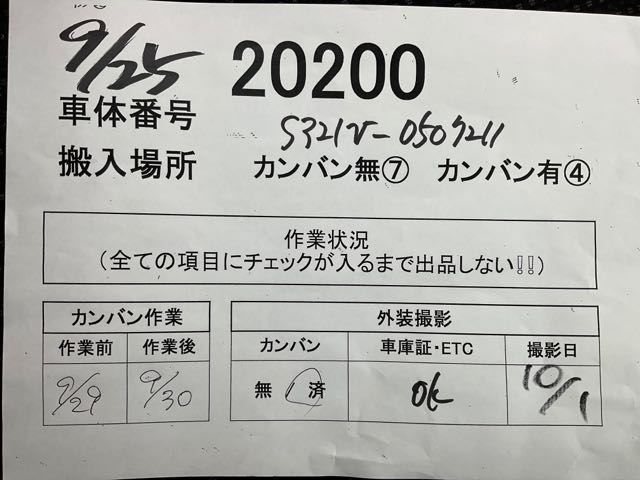 9/25 20200
車体番号 S321V-0507211
搬入場所 カンバン無⑦ カンバン有④
作業状況
(全ての項目にチェックが入るまで出品しない!!)
カンバン作業 外装撮影
作業前 作業後 カンバン 車庫証・ETC 撮影日
9/29 9/30 無 済 OK 10/1